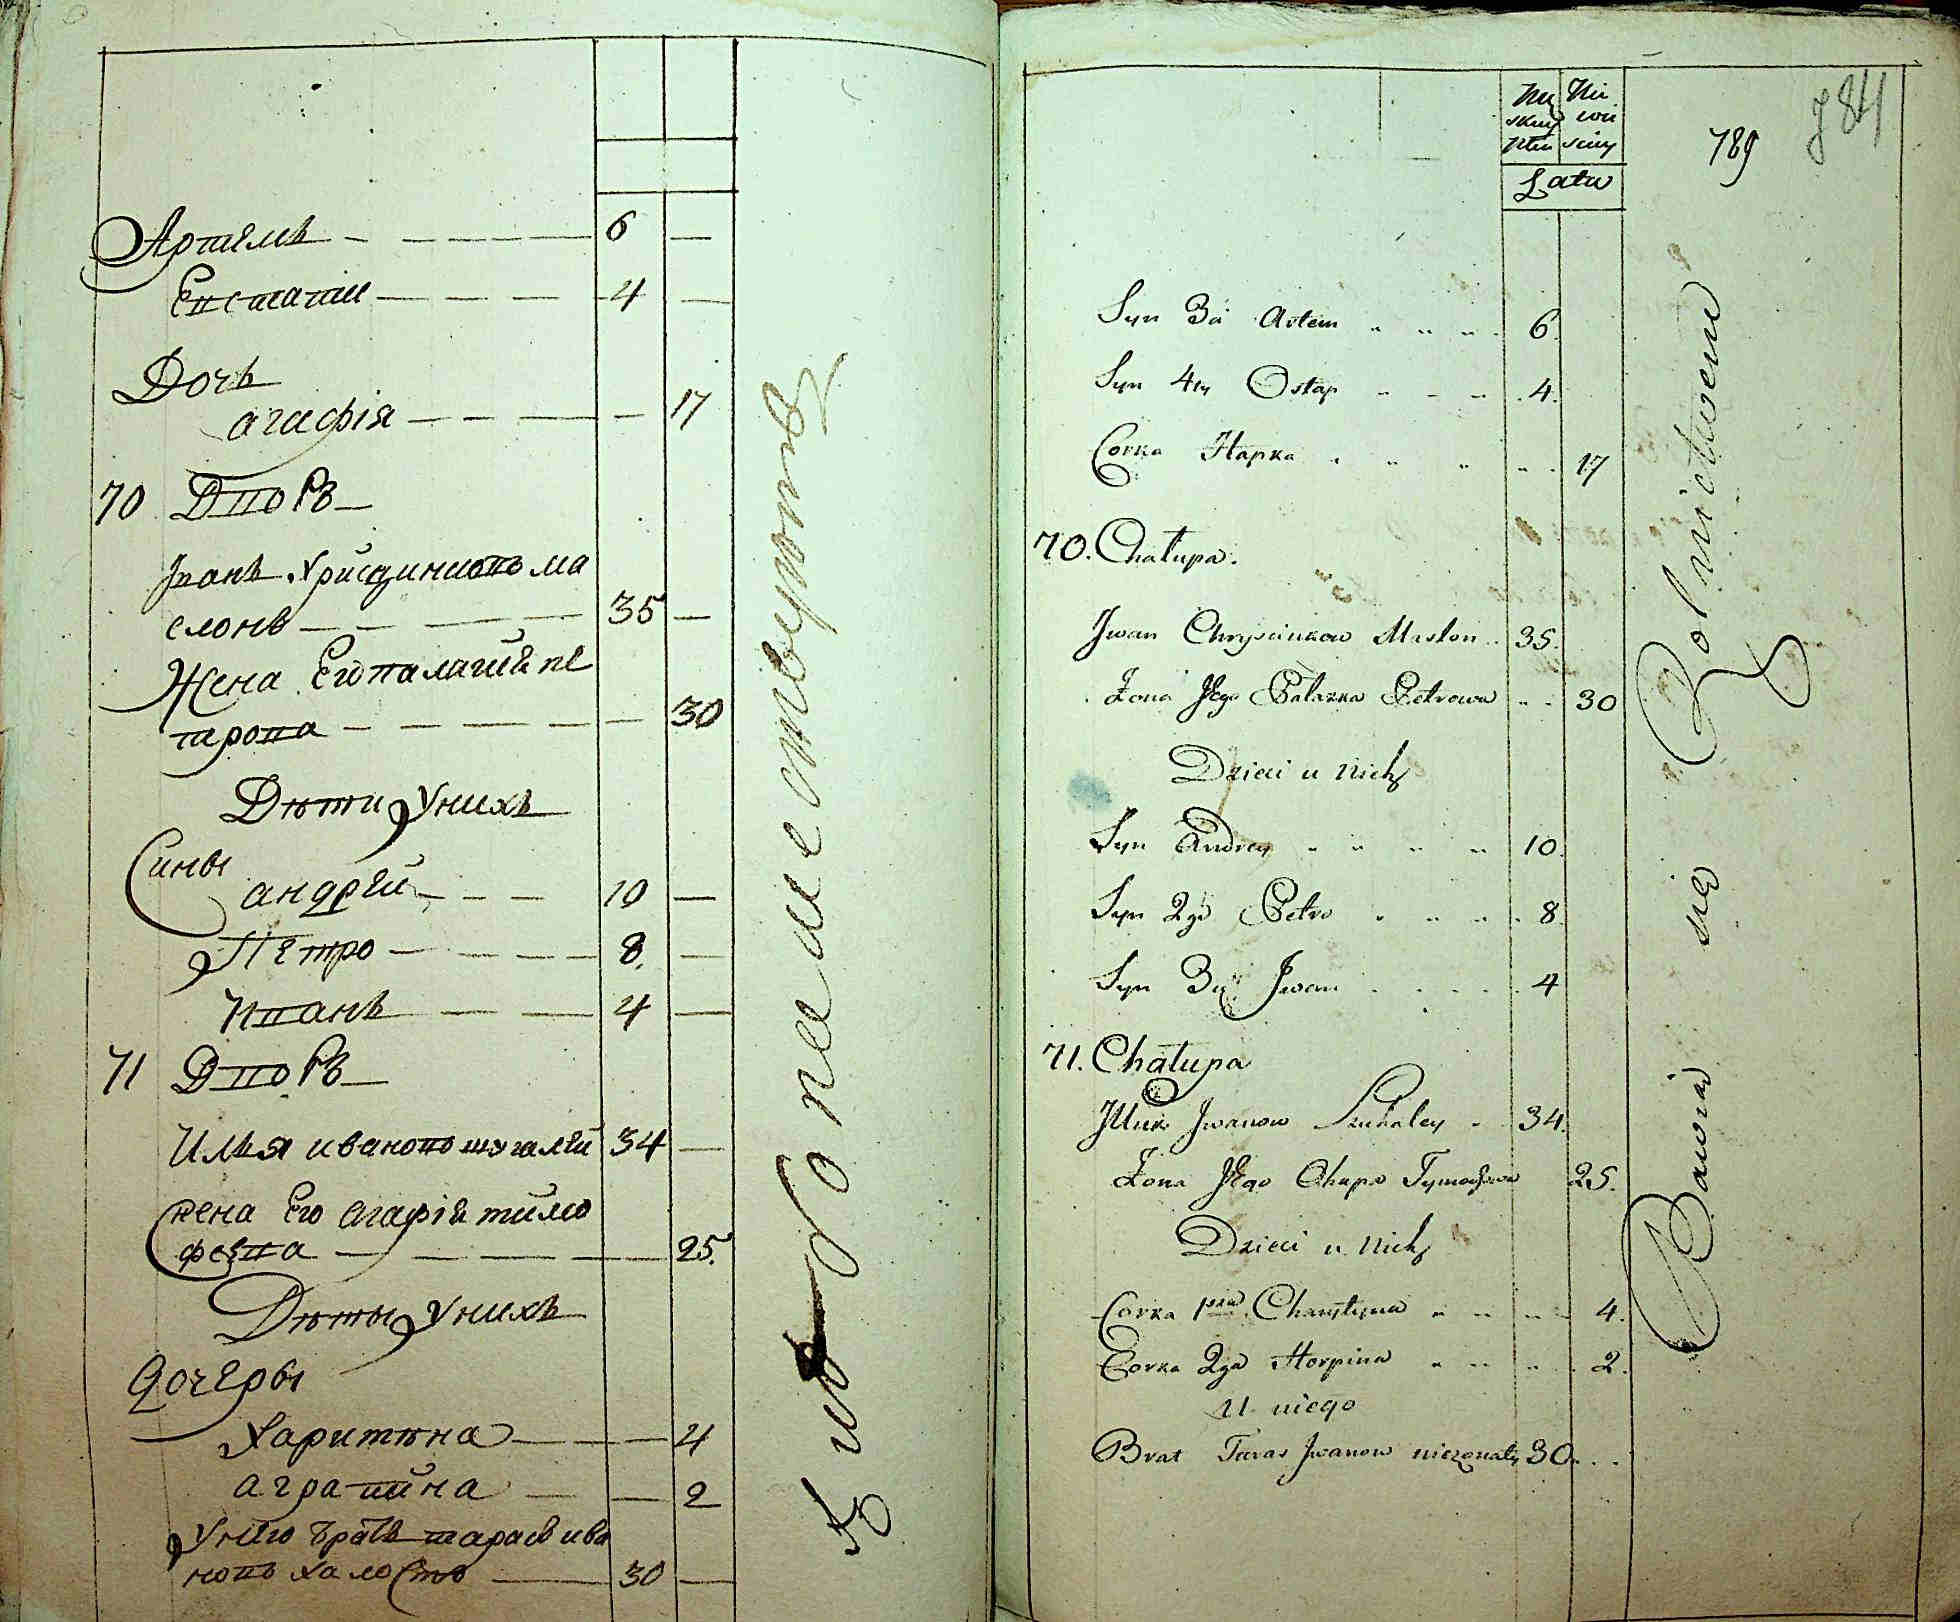 Артемъ 6 —
Евстатие 4 —
Дочъ
агафія — 17
70 Дворъ
Іванъ Хрисцинновъ ма
слонъ 35 —
Жена Его палагия пе
трова — 30
Дѣти Унихъ
Сины
андрей 10 —
Петро 8. —
Иванъ 4 —
71 Дворъ
Илья ивановъ шугалей 34 —
жена Его агафія тимо
феева — 25.
Дѣты Унихъ
дочеры
Харитѣна — 4
аграпина — 2
Унего братъ тарасъ ива
новъ халостъ 30 —
789
784
Męskiey płci
Niewieściey
Lata
Syn 3ci Artem 6.
Syn 4ty Ostap 4.
Corka Hapka 17
70. Chałupa.
Jwan Chryscinkow Masłon 35.
Żona Jego Pałazka Petrowa 30
Dzieci u Nich
Syn Andrey 10.
Syn 2gi Petro 8
Syn 3ci Jwan 4
71. Chałupa
Jlliia Jwanow Szuhaley 34.
Żona Jego Ohapa Tymoszowa 25.
Dzieci u Nich
Corka 1sza Charytyna 4.
Corka 2ga Horpina 2.
U niego
Brat Taras Jwanow nieżonaty 30.
Bawią się Rolnictwem